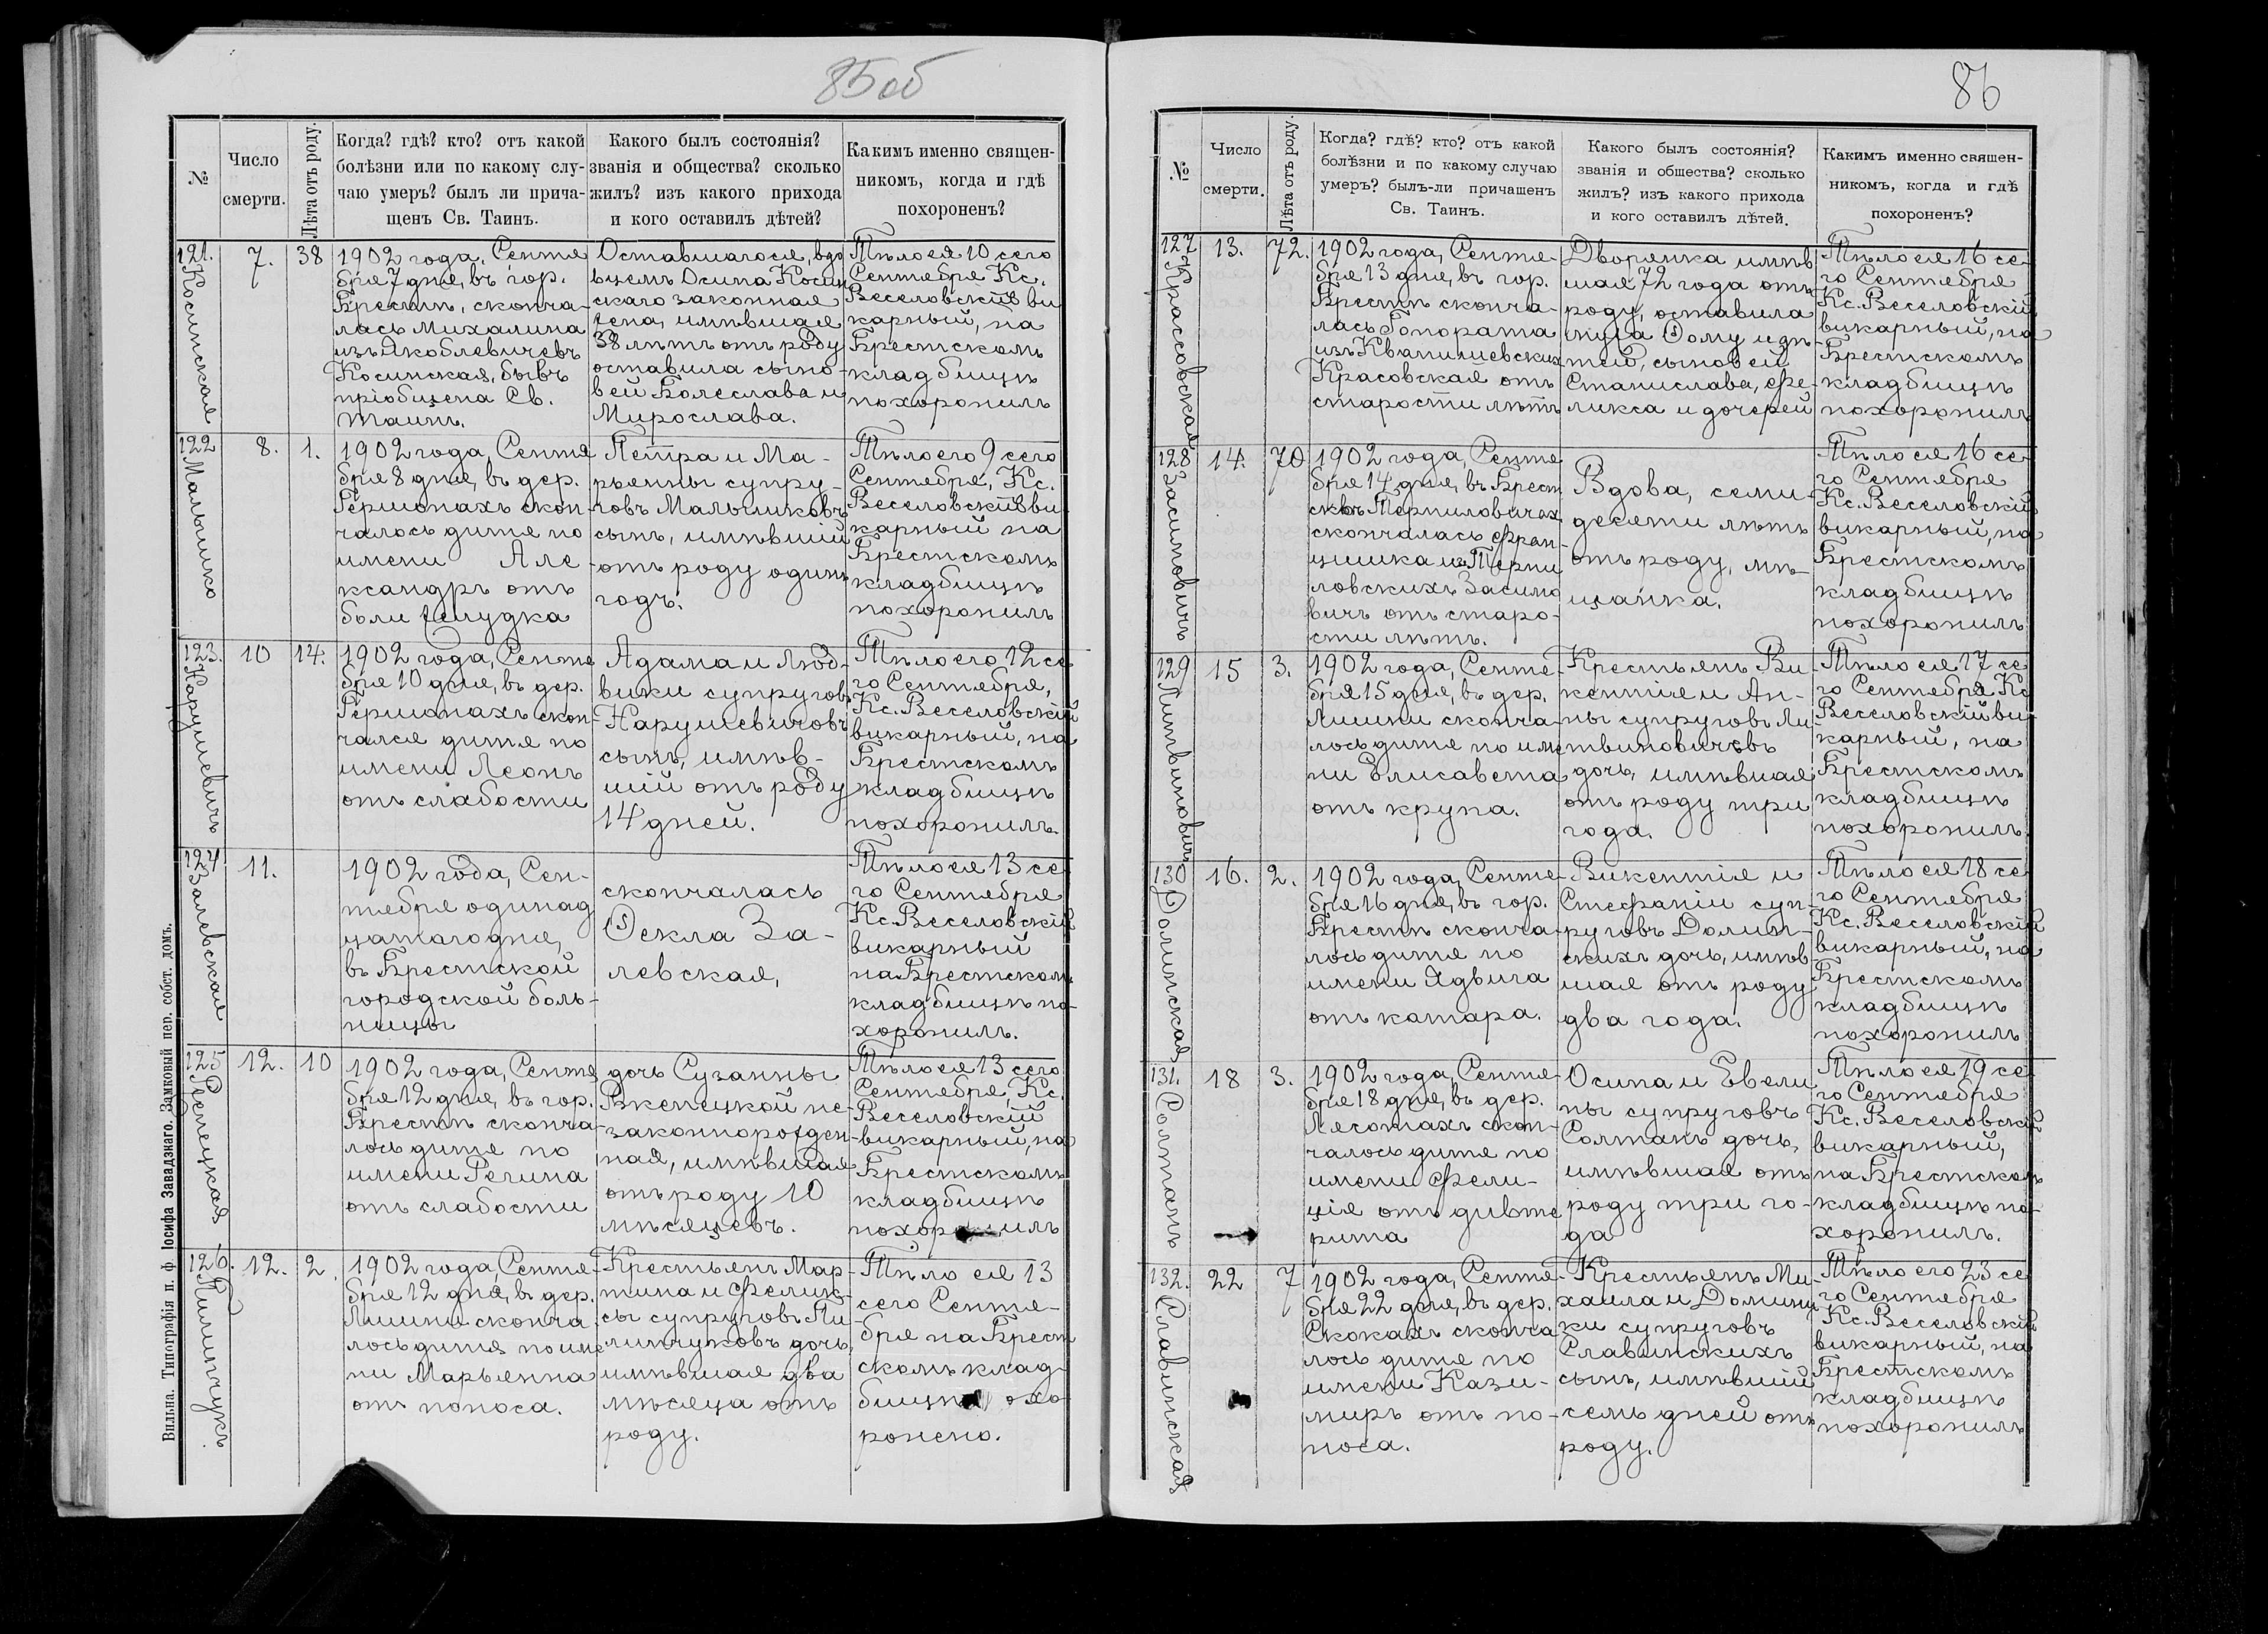 85 об
№
Число
смерти.
Лѣта отъ роду.
Когда? гдѣ? кто? отъ какой
болѣзни или по какому слу-
чаю умеръ? былъ ли прича-
щенъ Св. Таинъ.
Какого былъ состоянія?
званія и общества? сколько
жилъ? изъ какого прихода
и кого оставилъ дѣтей?
Какимъ именно священ-
никомъ, когда и гдѣ
похороненъ?
121.
Косинская
7.
38
1902 года, Сентя
бря 7 дня, въ гор.
Брестѣ, сконча-
лась Михалина
изъ Якоблевичевъ
Косинская, бывъ
пріобщена Св.
Таинъ.
Оставшагося, вдо
вцемъ Осипа Косин
скаго законная
жена, имѣвшая
38 лѣтъ отъ роду
оставила сыно-
вей Болеслава и
Мирослава.
Тѣло ея 10 сего
Сентября Кс.
Веселовскій ви
карный, на
Брестскомъ
кладбищѣ
похоронилъ
122
Малышко
8.
1.
1902 года, Сентя
бря 8 дня, въ дер.
Гершонахъ скон-
чалось дитя по
имени Але-
ксандръ отъ
боли желудка
Петра и Ма-
рьянны супру-
говъ Малышковъ
сынъ, имѣвшій
отъ роду одинъ
годъ.
Тѣло его 9 сего
Сентября, Кс.
Веселовскій ви
карный на
Брестскомъ
кладбищѣ
похоронилъ
123.
Нарушевичъ
10
14.
1902 года, Сентя
бря 10 дня, въ дер.
Гершонахъ скон-
чался дитя по
имени Леонъ
отъ слабости
Адама и Люд-
вики супруговъ
Нарушевичовъ
сынъ, имѣв-
шій отъ роду
14 дней.
Тѣло его 12 се
го Сентября,
Кс. Веселовскій
викарный, на
Брестскомъ
кладбищѣ
похоронилъ.
124
Залевская
11.
1902 года, Сен-
тября одинад
цатаго дня,
въ Брестской
городской боль-
ницы
скончалась
Ѳекла За-
левская,
Тѣло ея 13 се-
го Сентября
Кс. Веселовскій
викарный
на Брестскомъ
кладбищѣ по-
хоронилъ.
125
12.
10
1902 года, Сентя
бря 12 дня, въ гор.
Брестѣ сконча-
лось дитя по
имени Регина
отъ слабости
дочь Сузанны
Ржепецкой не-
законнорожден-
ная, имѣвшая
отъ роду 10
мѣсяцевъ.
Тѣло ея 13 сего
Сентября, Кс.
Веселовскій
викарный, на
Брестскомъ
кладбищѣ
похоронилъ
126.
Пилипчукъ
12.
2.
1902 года, Сентя-
бря 12 дня, въ дер.
сконча
лось дитя по име
ни Марьянна
отъ поноса.
Крестьянъ Мар-
тина и Фелик-
сы супруговъ Пи
липчуковъ дочь,
имѣвшая два
мѣсяца отъ
роду.
Тѣло ея 13
сего Сентя-
бря на Брест
скомъ клад-
бищѣ похо-
ронено.
Вильна. Типографія п. ф. Іосифа Завадзкаго. Замковый пер. собст. домъ.
86
№
Число
смерти.
Лѣта отъ роду.
Когда? гдѣ? кто? отъ какой
болѣзни и по какому случаю
умеръ? былъ-ли причашенъ
Св. Таинъ.
Какого былъ состоянія?
званія и обшества? сколько
жилъ? изъ какого прихода
и кого оставилъ дѣтей.
Какимъ именно свяшен-
никомъ, когда и гдѣ
похороненъ?
127
Крассовская
13.
72.
1902 года, Сентя-
бря 13 дня, въ гор.
Брестѣ сконча-
лась Гонората
изъ Квапишевскихъ
Красовская отъ
старости лѣтъ
Дворянка имѣв
шая 72 года отъ
роду, оставила
мужа Ѳому и дѣ-
тей, сыновей
Станислава, Фе-
ликса и дочерей
Тѣло ея 16 се-
го Сентября
Кс. Веселовскій
викарный, на
Брестскомъ
кладбищѣ
похоронилъ
128
Засимовичъ
14.
70
1902 года, Сентя
бря 14 дня, въ Брест
скончалась Фран-
цишка изъ Терпи
ловскихъ Засимо
вичъ отъ старо-
сти лѣтъ.
Вдова, семи-
десяти лѣтъ
отъ роду, мѣ-
щанка.
Тѣло ея 16 се-
го Сентября
Кс. Веселовскій
викарный, на
Брестскомъ
кладбищѣ
похоронилъ
129
Литвиновичъ
15
3.
1902 года, Сентя-
бря 15 дня, въ дер.
сконча-
лось дитя по име
ни Елисавета
отъ крупа.
Крестьянъ Ви-
кентія и Ан-
ны супруговъ Ли
твиновичевъ
дочь, имѣвшая
отъ роду три
года.
Тѣло ея 17 се
го Сентября Кс
Веселовскій ви
карный, на
Брестскомъ
кладбищѣ
похоронилъ.
130
Долинская
16.
2.
1902 года, Сентя-
бря 16 дня, въ гор.
Брестѣ сконча-
лось дитя по
имени Ядвига
отъ катара.
Викентія и
Стефаніи суп-
руговъ Долин-
скихъ дочь, имѣв
шая отъ роду
два года.
Тѣло ея 18 се-
го Сентября
Кс. Веселовскій
викарный, на
Брестскомъ
кладбищѣ
похоронилъ
131.
Солтанъ
18
3.
1902 года, Сентя-
бря 18 дня, въ дер.
скон-
чалось дитя по
имени Фели-
ція отъ дифте
рита
Осипа и Евели
ны супруговъ
Солтанъ дочь,
имѣвшая отъ
роду три го-
да
Тѣло ея 19 се-
го Сентября
Кс. Веселовскій
викарный,
на Брестскомъ
кладбищѣ по-
хоронилъ.
132.
Славинская
22
7
1902 года, Сентя-
бря 22 дня, въ дер.
Скокахъ сконча
лось дитя по
имени Кази-
миръ отъ по-
носа.
Крестьянъ Ми-
хаила и Домини
ки супруговъ
Славинскихъ
сынъ, имѣвшій
семь дней отъ
роду.
Тѣло его 23 се
го Сентября
Кс. Веселовскій
викарный, на
Брестскомъ
кладбищѣ
похоронилъ